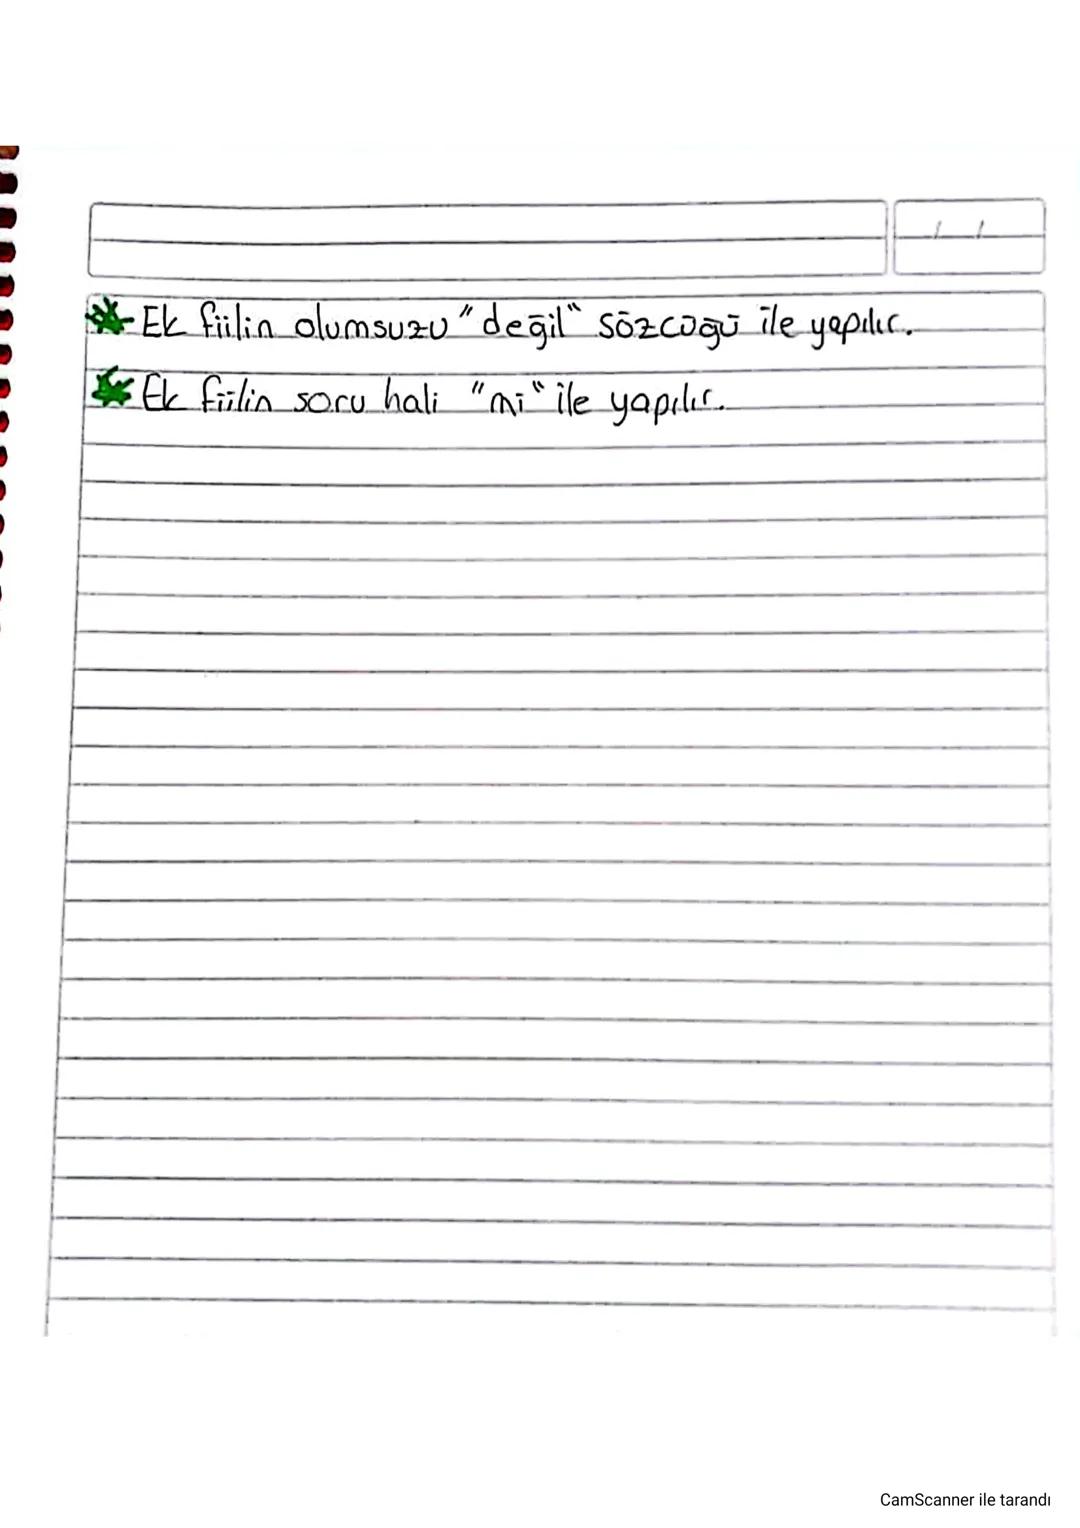 Ek fiilin olumsuzu "değil" sözcüğü ile yapılır.
Ek fiilin soru hali "mi" ile yapılır.
CamScanner ile tarandı